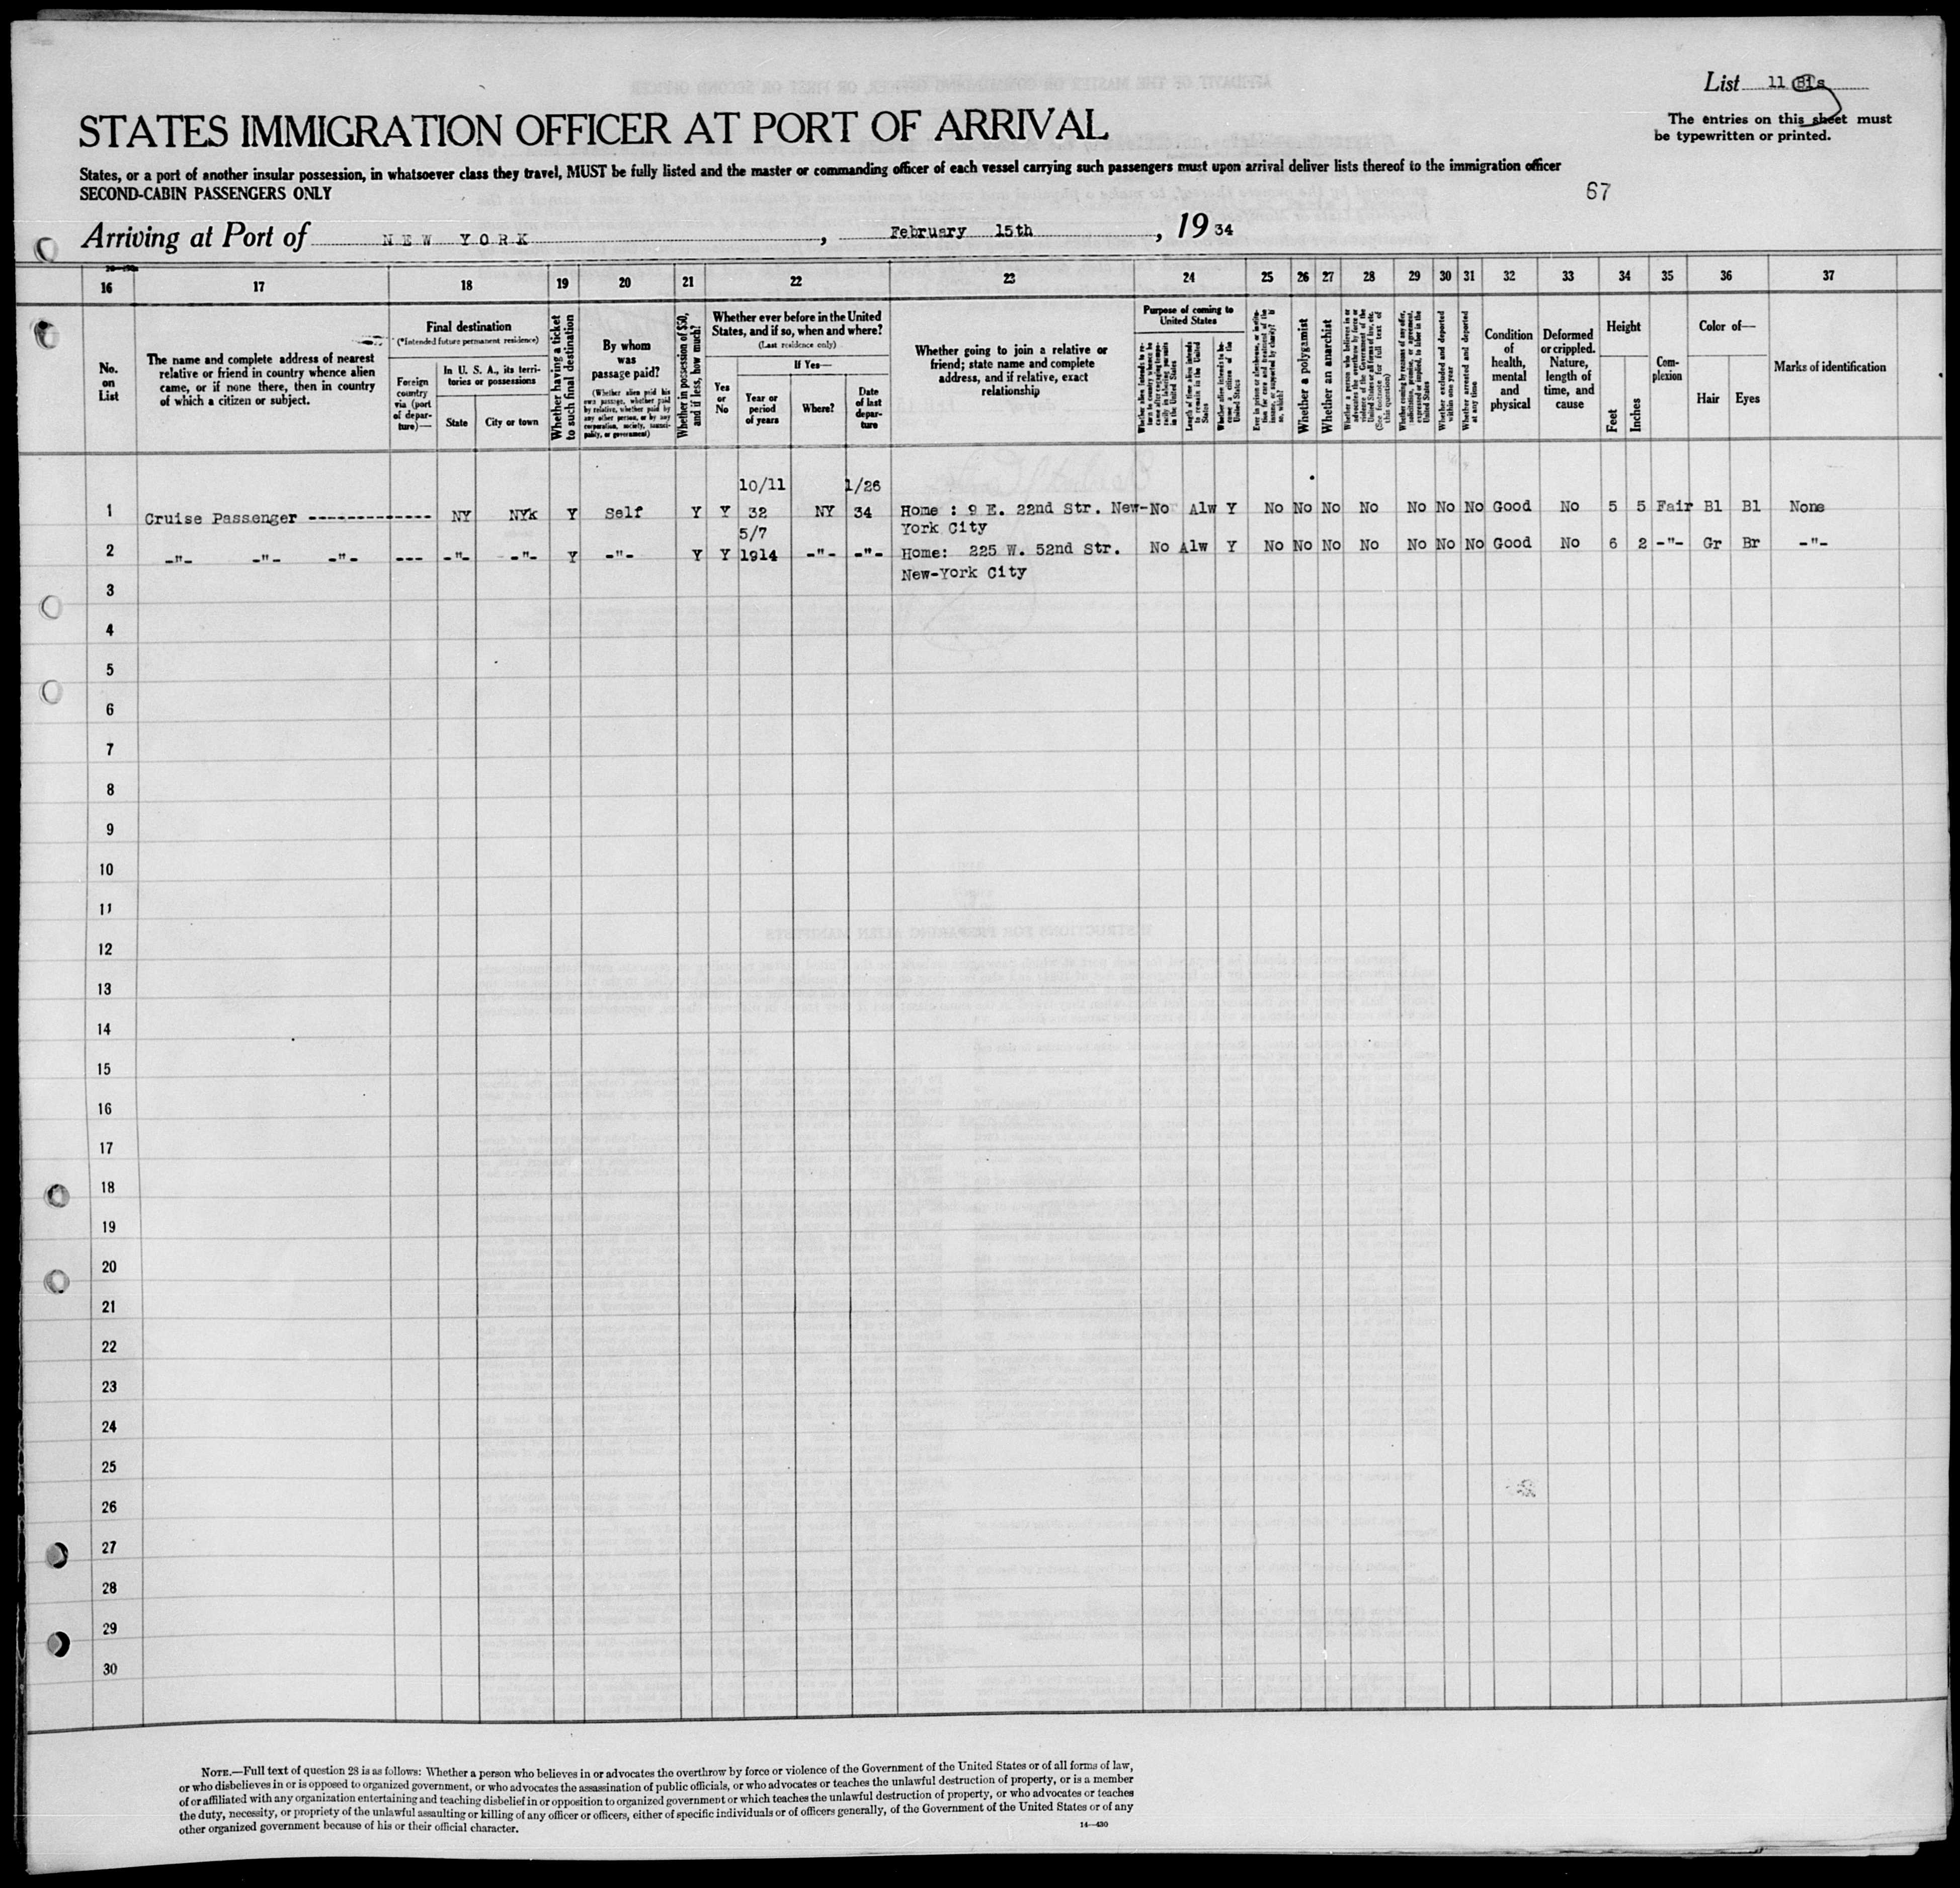 List 11
The entries on this sheet must
be typewritten or printed.
STATES IMMIGRATION OFFICER AT PORT OF ARRIVAL
States, or a port of another insular possession, in whatsoever class they travel, MUST be fully listed and the master or commanding officer of each vessel carrying such passengers must upon arrival deliver lists thereof to the immigration officer
SECOND-CABIN PASSENGERS ONLY
67
Arriving at Port of NEW YORK, February 15th, 1934
16 17 18 19 20 21 22 23 24 25 26 27 28 29 30 31 32 33 34 35 36 37
No. on List
The name and complete address of nearest relative or friend in country whence alien came, or if none there, then in country of which a citizen or subject.
Final destination
(*Intended future permanent residence)
Foreign country via (port of departure)—
In U. S. A., its territories or possessions
State
City or town
Whether having a ticket to such final destination
By whom was passage paid?
(Whether alien paid his own passage, whether paid by relative, whether paid by any other person, or by any corporation, society, municipality, or government)
Whether in possession of $50, and if less, how much?
Whether ever before in the United States, and if so, when and where?
(Last residence only)
If Yes—
Yes or No
Year or period of years
Where?
Date of last departure
Whether going to join a relative or friend; state name and complete address, and if relative, exact relationship
Purpose of coming to United States
Length of time alien intends to remain in the United States
Whether alien intends to become a citizen of the United States
Whether a polygamist
Whether an anarchist
Whether excluded and deported within one year
Whether arrested and deported at any time
Condition of health, mental and physical
Deformed or crippled. Nature, length of time, and cause
Height
Feet
Inches
Complexion
Color of—
Hair
Eyes
Marks of identification
10/11 1/26
1 Cruise Passenger ------------- NY NYk Y Self Y Y 32 NY 34 Home : 9 E. 22nd Str. New- No Alw Y No No No No No No No Good No 5 5 Fair Bl Bl None
5/7 York City
2 -"- -"- -"- --- -"- -"- Y -"- Y Y 1914 -"- -"- Home: 225 W. 52nd Str. No Alw Y No No No No No No No Good No 6 2 -"- Gr Br -"-
New-York City
3
4
5
6
7
8
9
10
11
12
13
14
15
16
17
18
19
20
21
22
23
24
25
26
27
28
29
30
NOTE.—Full text of question 28 is as follows: Whether a person who believes in or advocates the overthrow by force or violence of the Government of the United States or of all forms of law,
or who disbelieves in or is opposed to organized government, or who advocates the assassination of public officials, or who advocates or teaches the unlawful destruction of property, or is a member
of or affiliated with any organization entertaining and teaching disbelief in or opposition to organized government or which teaches the unlawful destruction of property, or who advocates or teaches
the duty, necessity, or propriety of the unlawful assaulting or killing of any officer or officers, either of specific individuals or of officers generally, of the Government of the United States or of any
other organized government because of his or their official character.
14—430